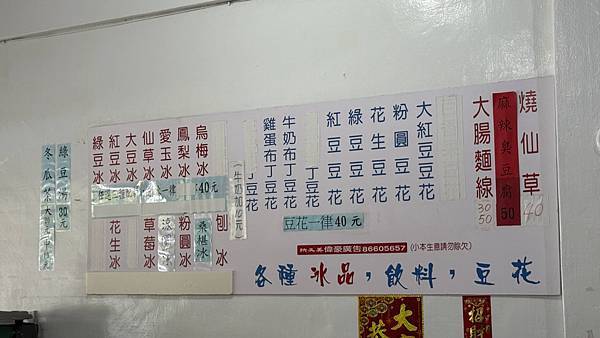 燒仙草 40
麻辣臭豆腐 50
大腸麵線 30 50
大紅豆豆花
粉圓豆花
花生豆花
綠豆豆花
紅豆豆花
牛奶布丁豆花
雞蛋布丁豆花
豆花一律40元
烏梅冰
鳳梨冰
愛玉冰
仙草冰
大豆冰
紅豆冰
綠豆冰
一律
40元
刨冰
桑椹冰
粉圓冰
草莓冰
花生冰
偉豪廣告86605657 (小本生意請勿賒欠)
各種冰品,飲料,豆花
綠豆沙30元
冬瓜茶
招財